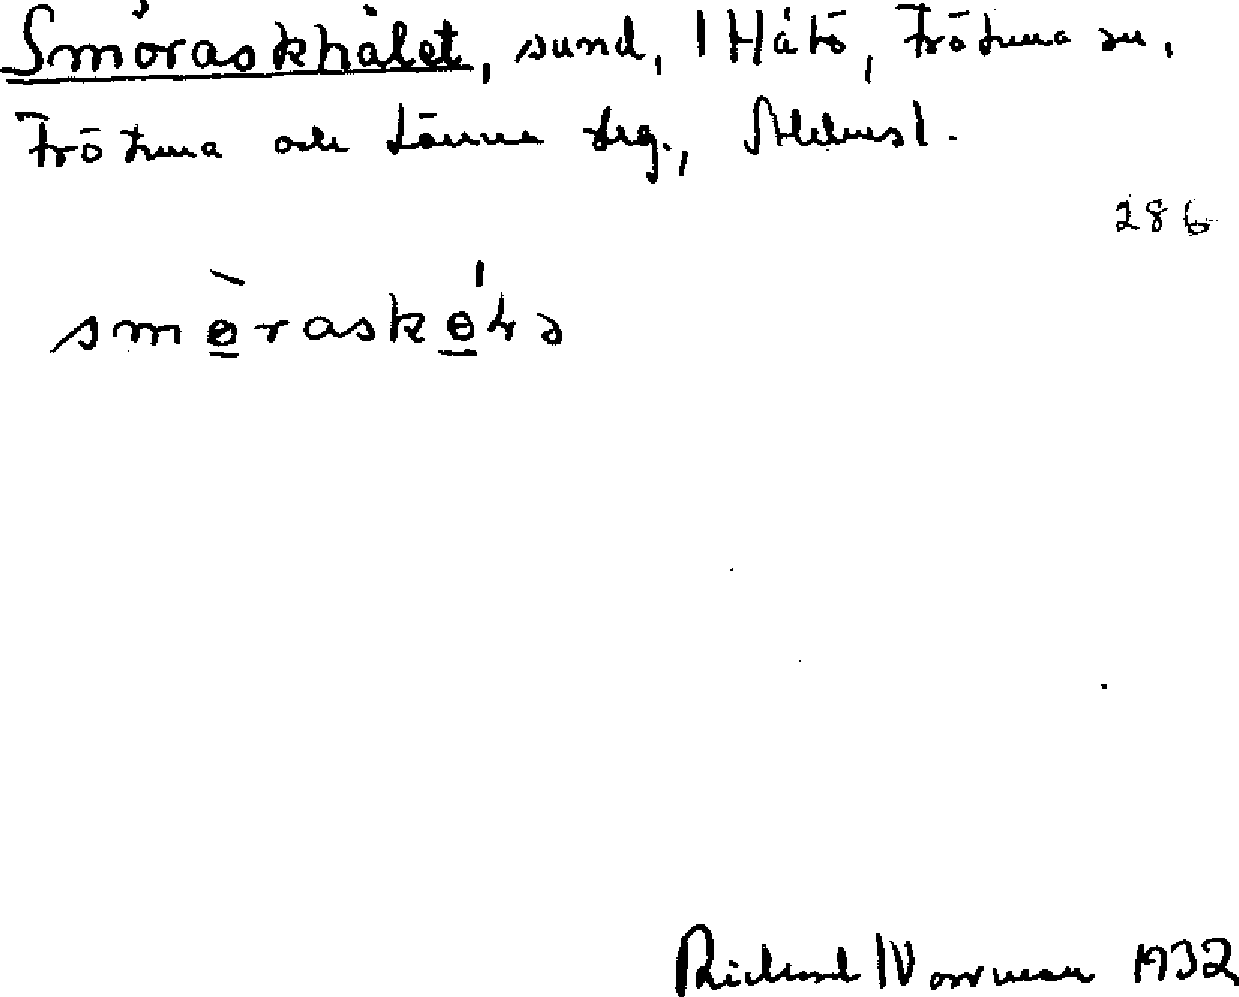 Smöraskhålet, sund, Håtö, Frötuna sn,
Frötuna och Länna skg., Sthlms l.
286
smöraskɵ́lə
Richard Norrman 1932